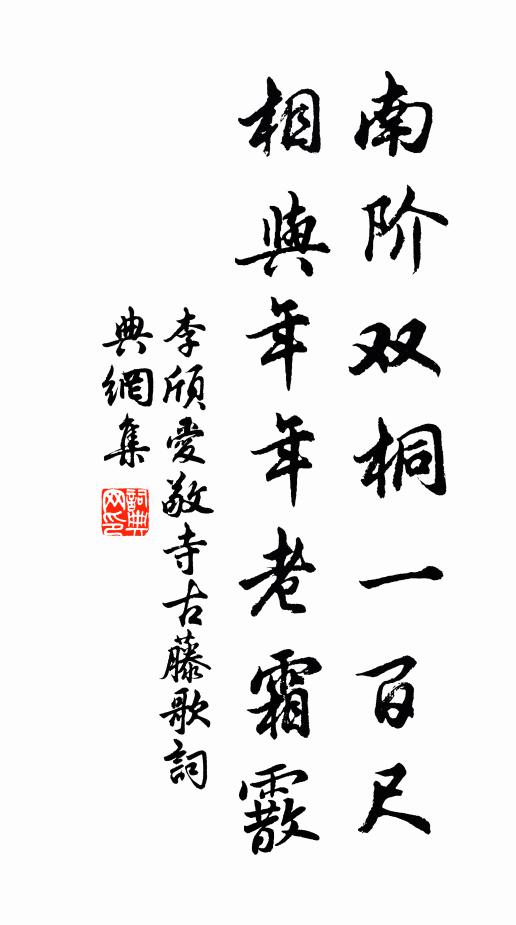 南阶双桐一百尺
相與年年老霜霰
李颀愛敬寺古藤歌詞
典網集
詞典网印